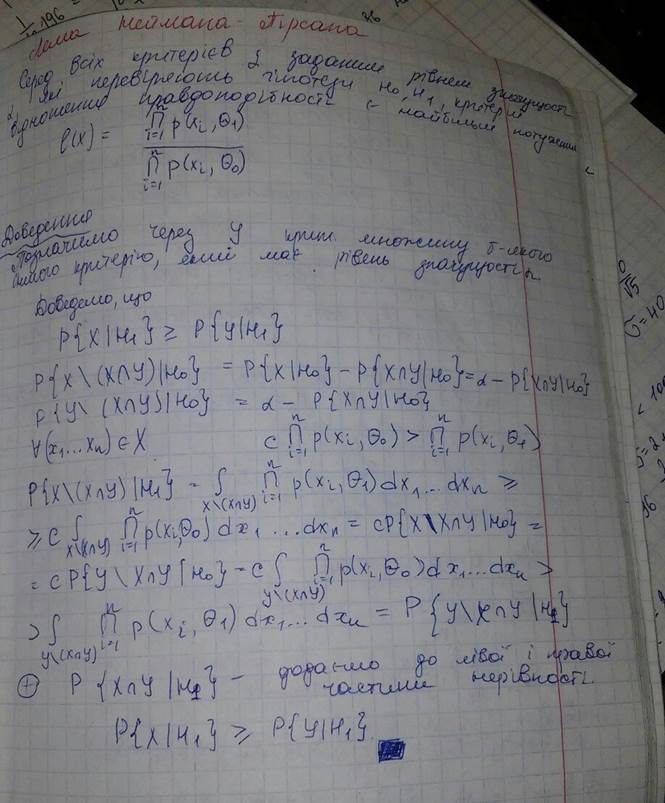 Лема Неймана - Пірсана
Серед всіх критерієв з заданим рівнем значущості
α, які перевіряють гіпотези H₀, H₁, критерій
відношення правдоподібності є найбільш потужним
l(x) = ∏ᵢ₌₁ⁿ p(xᵢ, Θ₁) / ∏ᵢ₌₁ⁿ p(xᵢ, Θ₀)
Доведення
Позначимо через Y крит. множину б-якого
іншого критерію, який має рівень значущості α.
Доведемо, що
P{X|H₁} ≥ P{Y|H₁}
P{X \ (X∩Y)|H₀} = P{X|H₀} − P{X∩Y|H₀} = α − P{X∩Y|H₀}
P{Y \ (X∩Y)|H₀} = α − P{X∩Y|H₀}
∀(x₁...xₙ) ∈ X c ∏ᵢ₌₁ⁿ p(xᵢ, Θ₀) > ∏ᵢ₌₁ⁿ p(xᵢ, Θ₁)
P{X \ (X∩Y)|H₁} = ∫_{X\(X∩Y)} ∏ᵢ₌₁ⁿ p(xᵢ, Θ₁) dx₁...dxₙ ≥
≥ c ∫_{X\(X∩Y)} ∏ᵢ₌₁ⁿ p(xᵢ, Θ₀) dx₁...dxₙ = cP{X \ X∩Y|H₀} =
= cP{Y \ X∩Y|H₀} = c ∫_{Y\(X∩Y)} ∏ᵢ₌₁ⁿ p(xᵢ, Θ₀) dx₁...dxₙ >
> ∫_{Y\(X∩Y)} ∏ᵢ₌₁ⁿ p(xᵢ, Θ₁) dx₁...dxₙ = P{Y \ X∩Y|H₁}
⊕ P{X∩Y|H₁} − додамо до лівої і правої
частини нерівності.
P{X|H₁} ≥ P{Y|H₁}